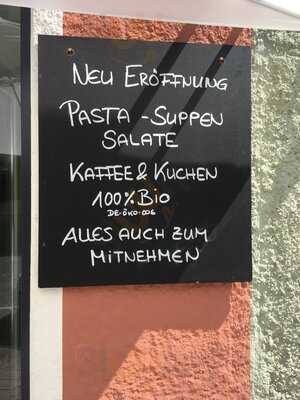 NEU ERÖFFNUNG
PASTA - SUPPEN
SALATE
KAFFEE & KUCHEN
100% BIO
DE-ÖKO-006
ALLES AUCH ZUM
MITNEHMEN